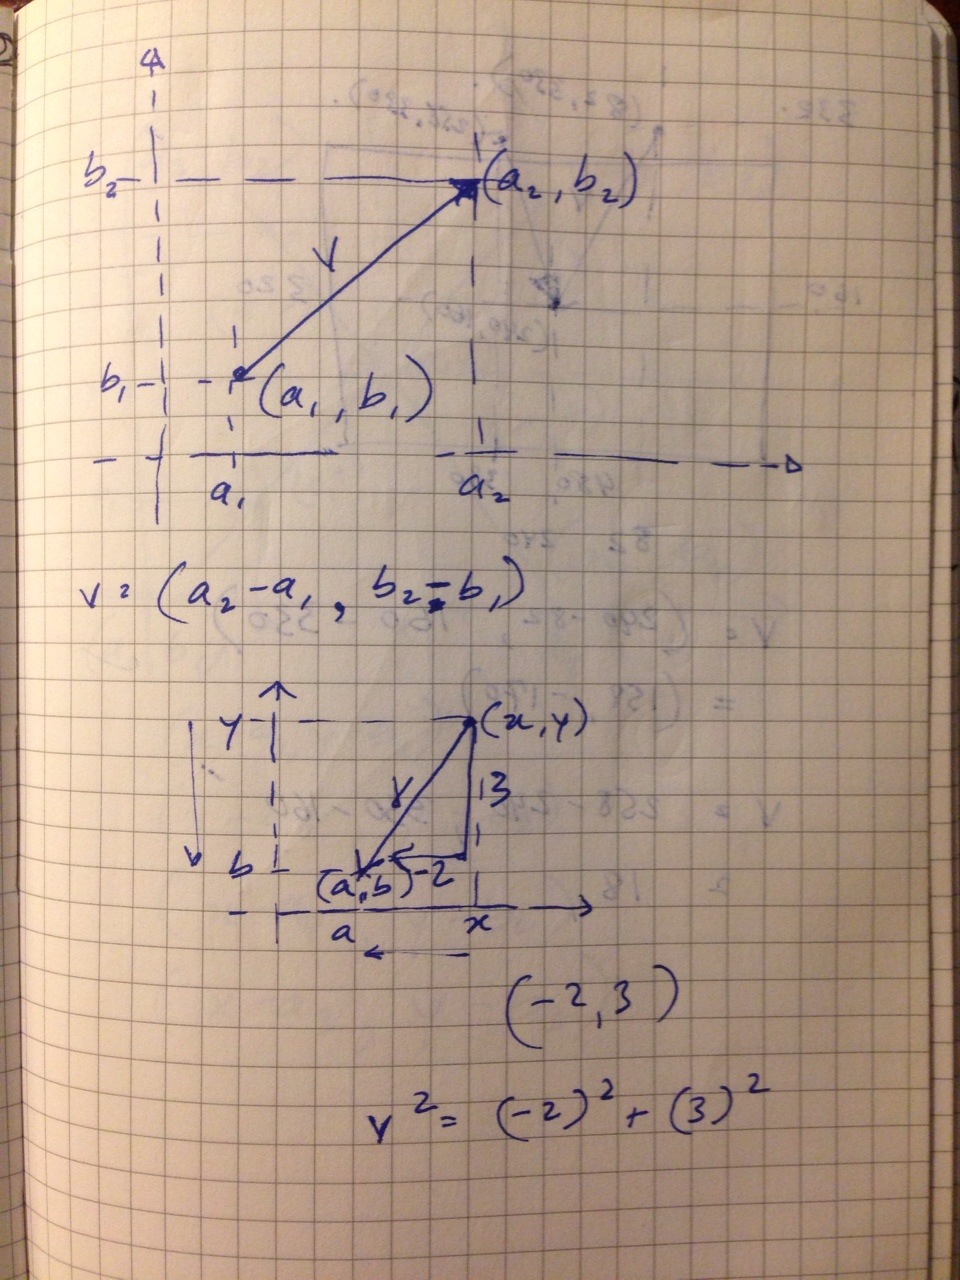 b₂ (a₂, b₂)
V
b₁ (a₁, b₁)
a₁ a₂
v = (a₂-a₁, b₂-b₁)
y (x, y)
v 3
b (a, b) -2
a x
(-2, 3)
v² = (-2)² + (3)²